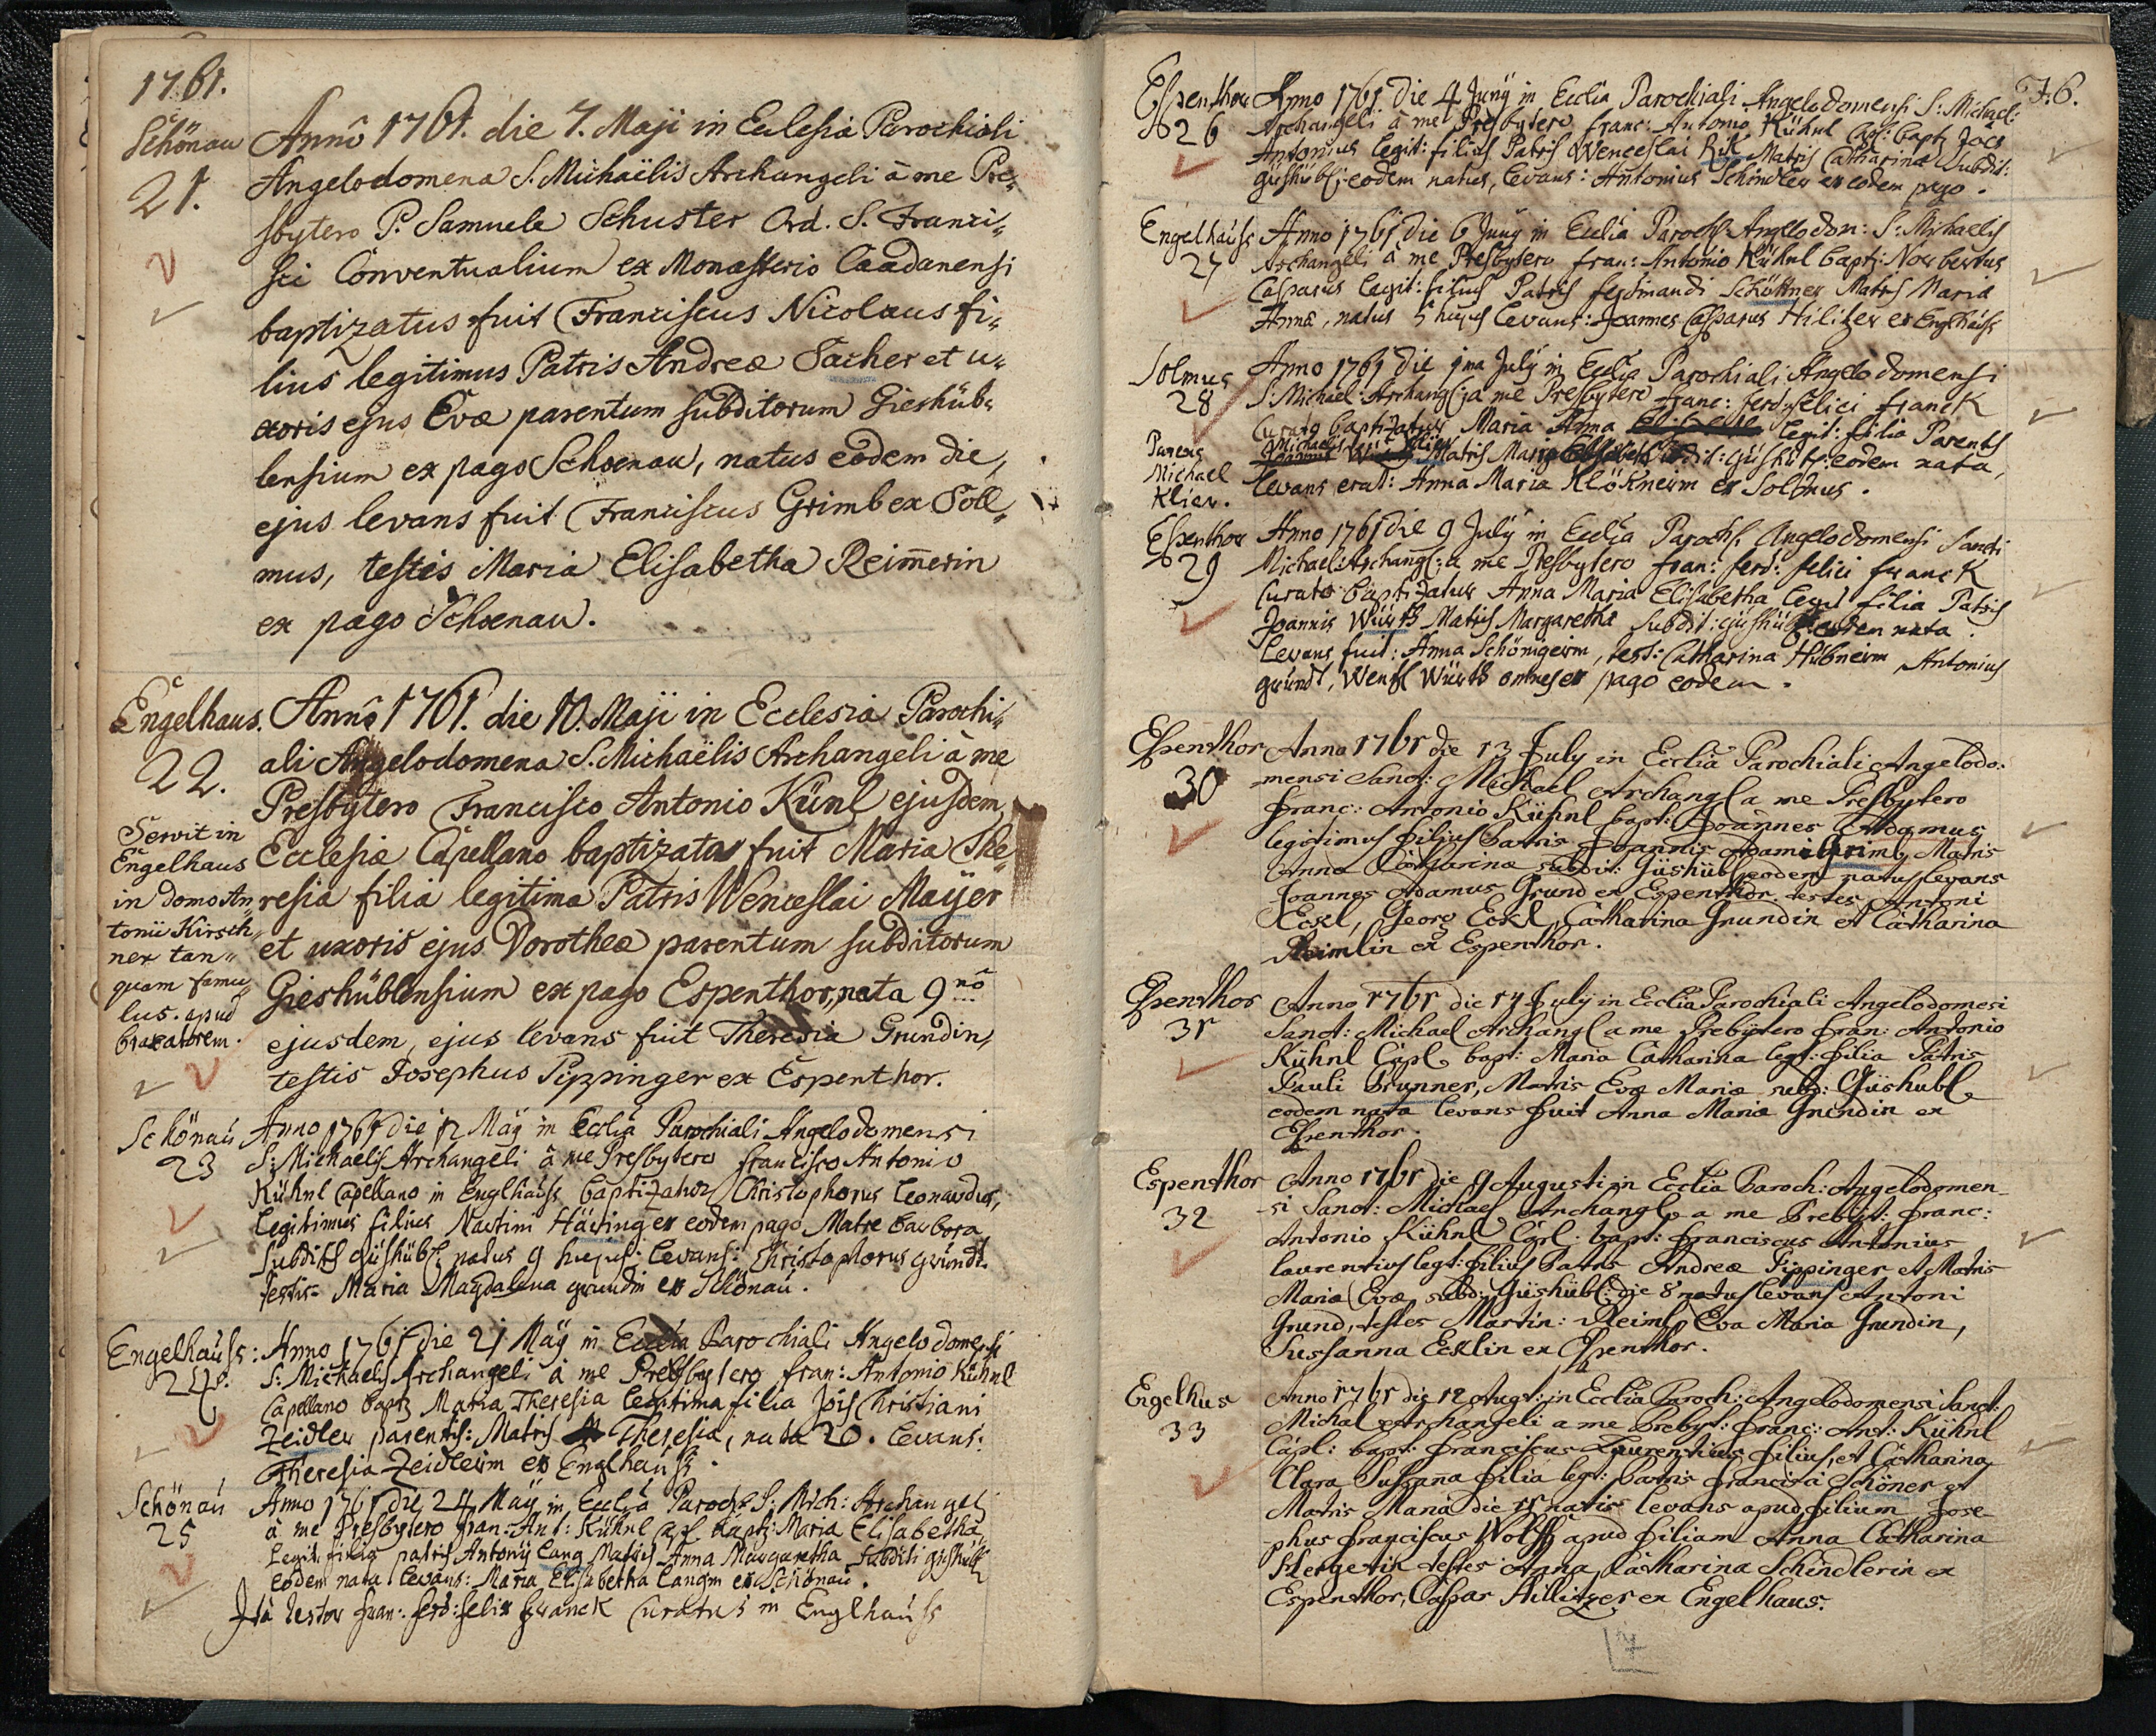 1761.
Schönau
21.
Annô 1761. die 7. Maji in Eclesia Parochiali
Angelodomena S. Michaëlis Archangeli à me Pre-
sbytero P. Samuele Schuster Ord. S. Franci-
sci Conventualium ex Monasterio Caadanensi
baptizatus fuit Franciscus Nicolaus fi-
lius legitimus Patris Andreæ Sacher et u-
xoris ejus Evæ parentum subditorum Gieshüb-
lensium ex pago Schoenau, natus eodem die,
ejus levans fuit Franciscus Grimb ex Soll-
mus, testis Maria Elisabetha Reim̄erin
ex pago Schoenau.
Engelhaus.
22.
Servit in
Engelhaus
in domo An-
tonii Kirsch-
ner tan-
quam famu-
lus. apud
braxatorem.
Annô 1761. die 10. Maji in Ecclesia Parochi-
ali Angelodomena S. Michaëlis Archangeli à me
Presbytero Francisco Antonio Künl ejusdem
Ecclesiæ Capellano baptizata fuit Maria The-
resia filia legitima Patris Wenceslai Mayer
et uxoris ejus Dorotheæ parentum subditorum
Gieshüblensium ex pago Espenthor, nata 9nô
ejusdem, ejus levans fuit Theresia Grundin,
testis Josephus Pippinger ex Espenthor.
Schönau
23
Anno 1761 die 12 Maÿ in Ecclia Parochiali Angelodomensi
S: Michaelis Archangeli à me Presbytero Francisco Antonio
Kühnl Capellano in Englhauss baptizatur Christophorus Leonardus,
legitimus filius Martini Häring ex eodem pago Matre Barbora
Subditis Güshübl: natus 9 hujus: levans: Christophorus gründt.
testis= Maria Magdalena grundin ex Schönau.
Engelhauss:
24.
Anno 1761 die 21 Maÿ in Ecclia Parochiali Angelodomensi
S: Michaelis Archangeli à me Presbytero fran: Antonio Kühnl
Capellano baptz Maria Theresia legitima filia Jois Christiani
Zeidler parentis: Matris Theresiæ, nata 20. levans:
Theresia Zeidlerin ex Englhauss.
Schönau
25
Anno 1761 die 24 Maÿ in Ecclia Paroch: S: Mich: Archangeli
à me Presbytero fran: Ant: Kühnl Capl. baptz: Maria Elisabetha
legit. filia patris Antonÿ Lang Matris Anna Margaretha Subditi gishübl
eodem nata levans: Maria Elisabetha langin ex Schönau.
Ità testor fran: ferd: felix franck Curatus in Englhauss
F. 6.
Espenthor
26
Anno 1761 die 4 Junÿ in Ecclia Parochiali Angelodomensi S: Michael:
Archangeli à me Presbytero franc: Antonio Kühnl Capl: baptz Joes
Antonius legit: filius Patris Wenceslai Rik Matris Catharinæ Subdit:
güshübl: eodem natus, levans: Antonius Schindler ex eodem pago.
Engelhauss
27
Anno 1761 die 6 Junÿ in Ecclia Paroch: Angelodom: S: Michaelis
Archangeli à me Presbytero fran: Antonio Kühnl baptz: Norbertus
Casparus legit: filius Patris ferdinandi Schöttner Matris Maria
Anna, natus 5 hujus levans: Joannes Casparus Hilitzer ex Englhauss
Solmus
28
Parens
Michael
Klier.
Anno 1761 die 1ma Julÿ in Ecclia Parochiali Angelodomensi
S: Michael: Archangl: à me Presbytero franc: ferd: felici franck
Curato baptizatur Maria Anna legit: filia Parentis
Michaelis Klier Matris Maria subdit: Güshübl: eodem nata,
levans erat: Anna Maria Klöknerin ex Solmus.
Espenthor
29
Anno 1761 die 9 Julÿ in Ecclia Paroch: Angelodomensi Sancti
Michaeli Archangl: a me Presbytero fran: ferd: felici franck
Curato baptizatur Anna Maria Elisabetha legit filia Patris
Joannis Würth Matris Margaretha Subdit: güshübl: eodem nata.
levans fuit: Anna Schönigerin, test: Catharina Hübnerin, Antonius
gründt, Wentzl Würth omnes ex pago eodem.
Espenthor
30
Anno 1761 die 13 July in Ecclia Parochiali Angelodo:
mensi Sanct: Michael Archangl a me Presbytero
franc: Antonio Kühnl bapt: Joannes Adamus
legitimus filius Patris Joannis Adami Grimb Matris
Anna Catharinæ subdit: Güshübl eodem natus levans
Joannes Adamus Grund ex Espenthor. testes Antoni
Eckl, Georg Eckl, Catharina Grundin et Catharina
Reimlin ex Espenthor.
Espenthor
31
Anno 1761 die 14 July in Ecclia Parochiali Angelodomesi
Sanct: Michael Archangl a me Prebytero fran: Antonio
Kühnl Capl: bapt: Maria Catharina legt: filia Patris
Pauli Brunner, Matris Evæ Mariæ subd: Güshubl
eodem nata levans fuit Anna Maria Grundin ex
Espenthor.
Espenthor
32
Anno 1761 die 9 Augusti in Ecclia Paroch: Angelodomen-
si Sanct: Michael Archangl a me Prebyt: franc:
Antonio Kühnl Capl: bapt: franciscus Antonius
laurentius legt: filius Patris Andreæ Pippinger et Matris
Mariæ Evæ subd: Güshübl: die 8 natus levans Antoni
Grund, testes Martin: Reiml, Eva Maria Grundin,
Sussanna Ecklin ex Espenthor.
Engelhus
33
Anno 1761 die 12 Augt: in Ecclia Paroch: Angelodomensi Sanct:
Michal Archangeli a me Prebyt: franc: Ant: Kühnl
Capl: bapt: franciscus Laurentius filius, et Catharina
Clara Susanna filia legt: Patris Francisci Schöner et
Matris Mariæ die 11 natis levans apud filium Jose-
phus franciscus Wolff apud filiam Anna Catharina
Hergetin testes Anna Catharina Schindlerin ex
Espenthor, Caspar Hillitzer ex Engelhaus.
7